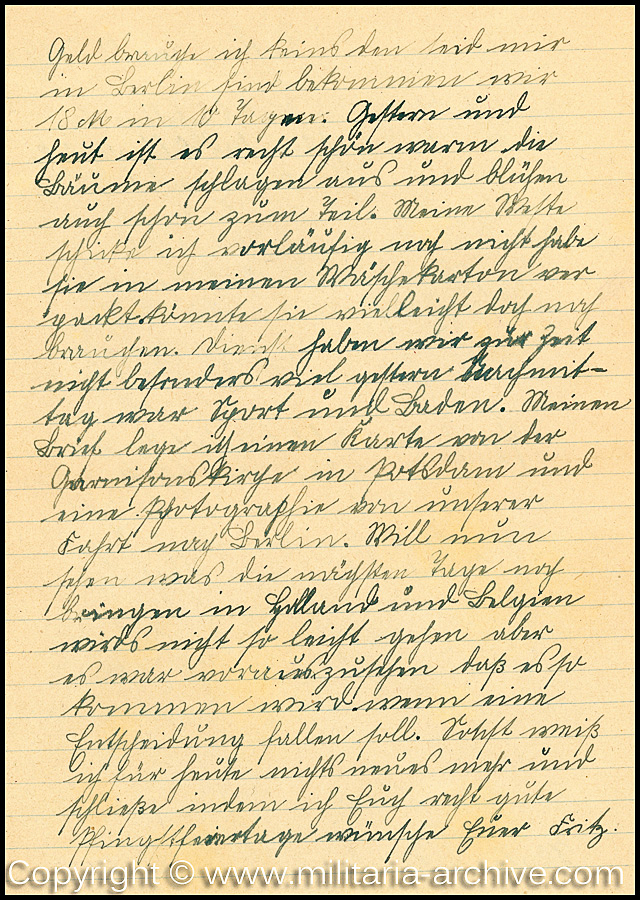 Geld brauche ich keins den seid mir
in Berlin sind bekommen wir
18 M in 10 Tagen. Gestern und
heut ist es recht schön warm die
Bäume schlagen aus und blühen
auch schon zum Teil. Meine Weste
schicke ich vorläufig noch nicht habe
sie in meinen Wäschekarton ver
packt. könnte sie vielleicht doch noch
brauchen. Dienst haben wir zur Zeit
nicht besonders viel gestern Nachmit-
tag war Sport und Baden. Meinen
Brief lege ich einen Karte von der
Garnisonskirche in Potsdam und
eine Photographie von unserer
Fahrt nach Berlin. Will nun
sehen was die nächsten Tage noch
bringen in Holland und Belgien
wirds nicht so leicht gehen aber
es war vorauszusehen daß es so
kommen wird wenn eine
Entscheidung fallen soll. Sonst weiß
ich für heute nichts neues mehr und
schließe indem ich Euch recht gute
Pfingstfeiertage wünsche Euer Fritz.
Copyright © www.militaria-archive.com ©